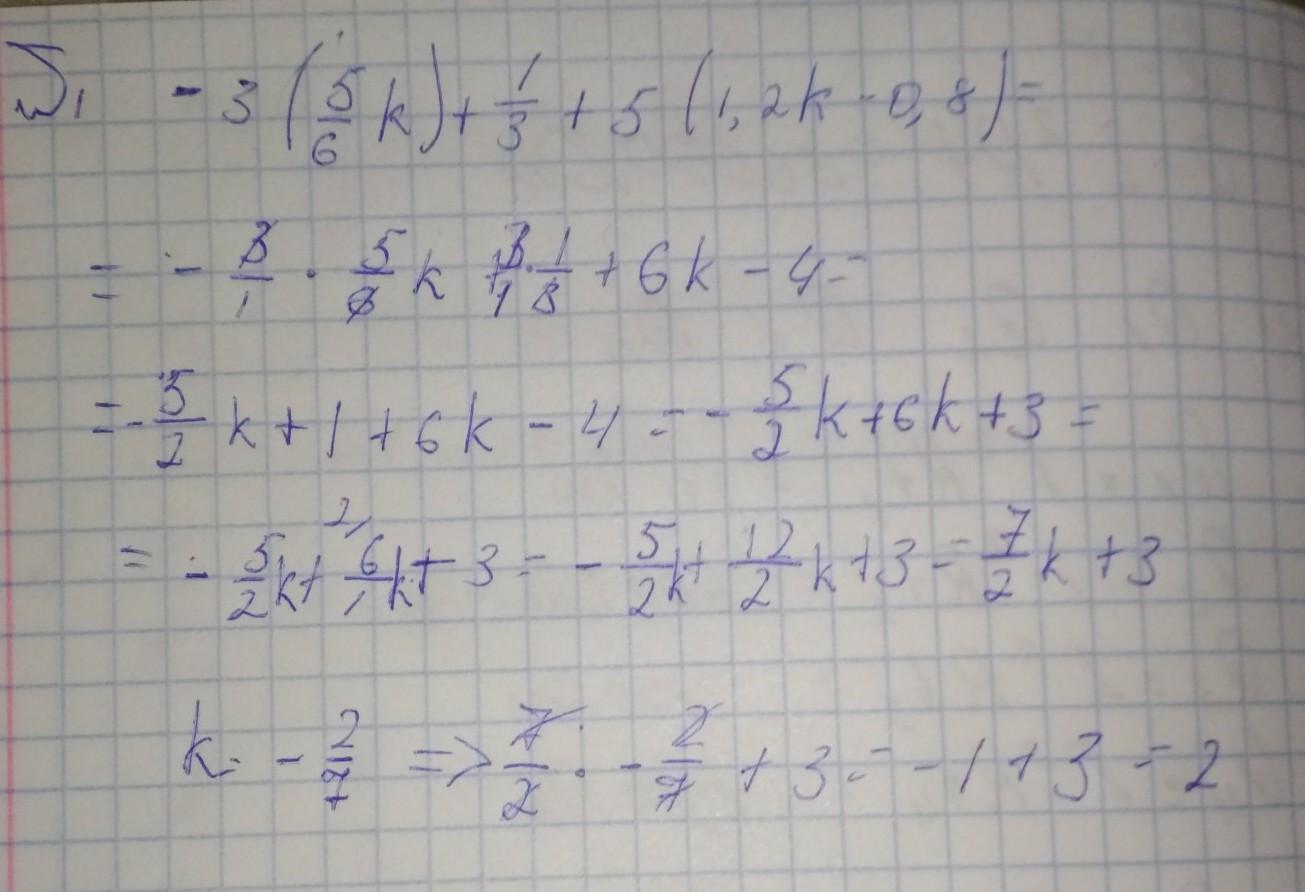 - 3 (5/6 k) + 1/3 + 5 (1,2k - 0,8) =
= - 3/1 · 5/6 k + 3/1 · 1/3 + 6k - 4 =
= - 5/2 k + 1 + 6k - 4 = - 5/2 k + 6k + 3 =
= - 5/2 k + 2/ 6/1 k + 3 = - 5/2 k + 12/2 k + 3 = 7/2 k + 3
k = - 2/7 => 7/2 · - 2/7 + 3 = - 1 + 3 = 2